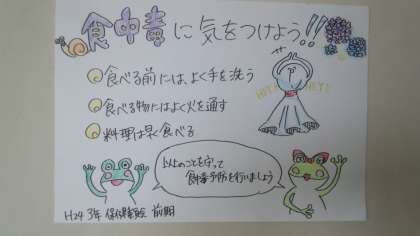 食中毒に気をつけよう!!
食べる前には、よく手を洗う
食べる物にはよく火を通す
料理は早く食べる
HEY!
HEY!
以上のことを守って
食中毒予防を行いましょう
H24 3年 保健委員会 前期